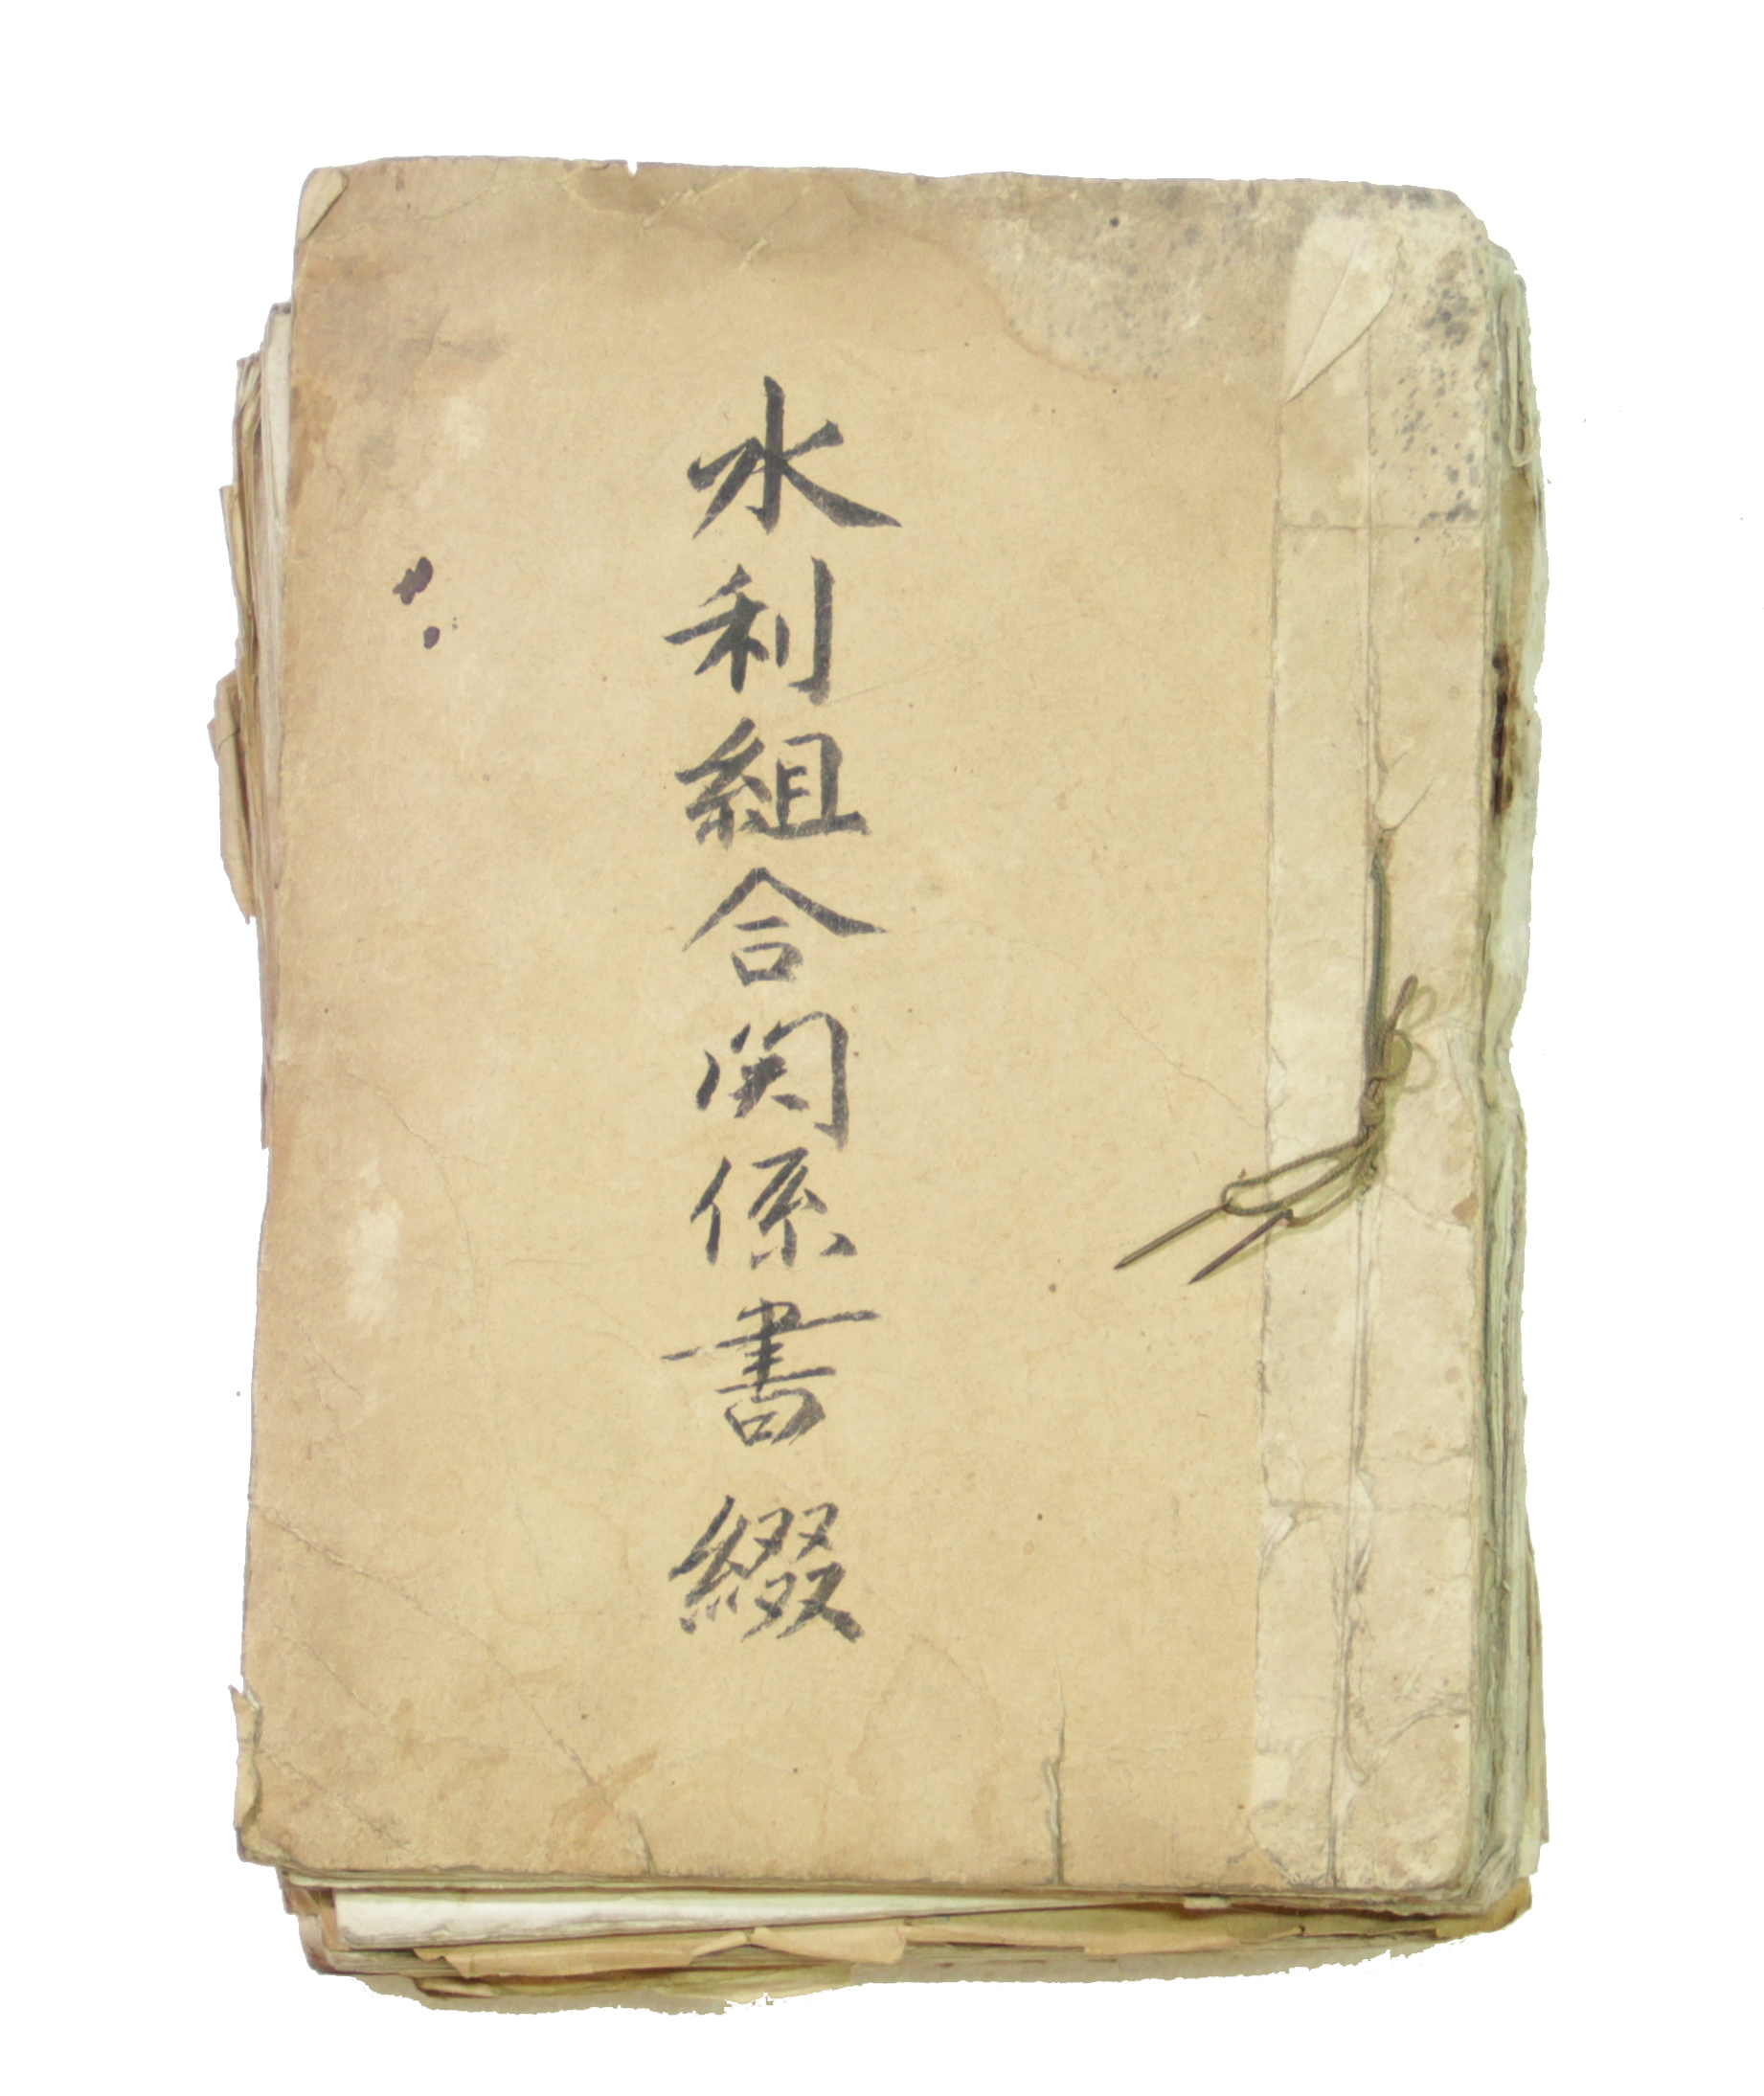 水利組合関係書綴